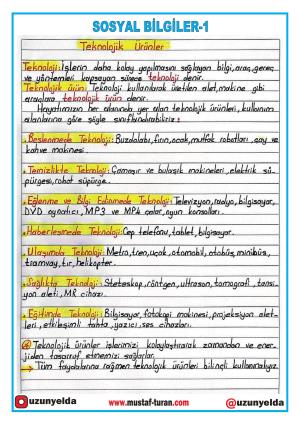 SOSYAL BİLGİLER-1
Teknolojik Ürünler
Teknoloji: İşlerin daha kolay yapılmasını sağlayan bilgi, araç, gereç
ve yöntemleri kapsayan sürece teknoloji denir.
Teknolojik ürün: Teknoloji kullanılarak üretilen alet, makine gibi
araçlara teknolojik ürün denir.
Hayatımızın her alanında yer alan teknolojik ürünleri, kullanım
alanlarına göre şöyle sınıflandırabiliriz:
• Beslenmede Teknoloji: Buzdolabı, fırın, ocak, mutfak robotları, çay ve
kahve makinesi.
• Temizlikte Teknoloji: Çamaşır ve bulaşık makineleri, elektrik sü-
pürgesi, robot süpürge.
• Eğlenme ve Bilgi Edinmede Teknoloji: Televizyon, radyo, bilgisayar,
DVD oynatıcı, MP3 ve MP4 çalar, oyun konsolları.
• Haberleşmede Teknoloji: Cep telefonu, tablet, bilgisayar.
• Ulaşımda Teknoloji: Metro, tren, uçak, otomobil, otobüs, minibüs,
tramvay, tır, helikopter.
• Sağlıkta Teknoloji: Steteskop, röntgen, ultrason, tomografi, tansi-
yon aleti, MR cihazı.
• Eğitimde Teknoloji: Bilgisayar, fotokopi makinesi, projeksiyon alet-
leri, etkileşimli tahta, yazıcı, ses cihazları.
Teknolojik ürünler işlerimizi kolaylaştırarak zamandan ve ener-
jiden tasarruf etmemizi sağlarlar.
→ Tüm faydalarına rağmen teknolojik ürünleri bilinçli kullanmalıyız.
uzunyelda
www.mustaf-turan.com
@uzunyelda